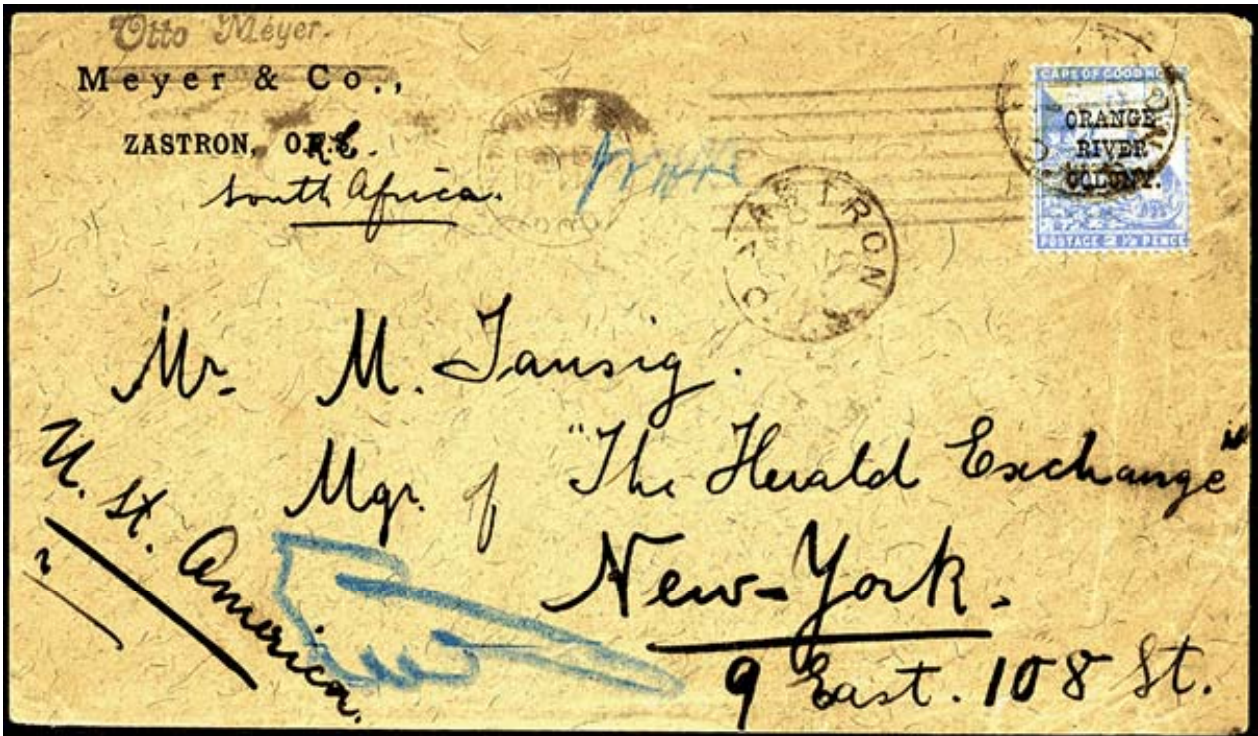 Otto Meyer.
Meyer & Co.,
ZASTRON, O.R.C.
South Africa.
CAPE OF GOOD HOPE
ORANGE
RIVER
COLONY.
POSTAGE 2 1/2 PENCE
ZASTRON
Mr. M. Tausig.
Mgr. of "The Herald Exchange"
New-York.
9 East. 108 St.
U. St. America.